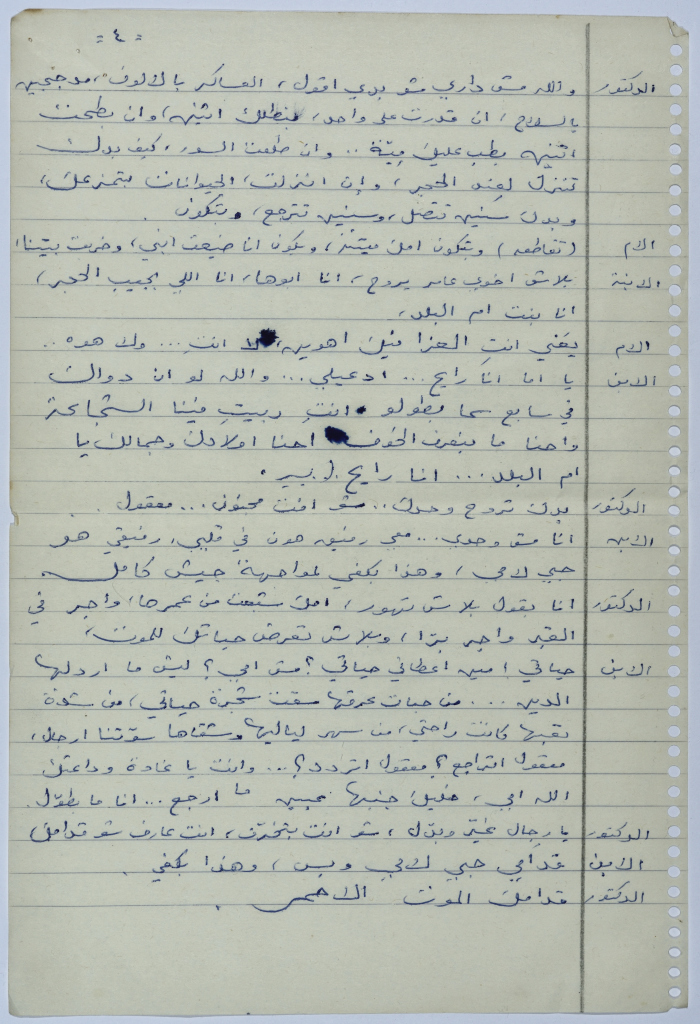 = ٤ =
الدكتور والله مش داري شو بدي اقول، العساكر بالالوف، مدججين
بالسلاح، ان قدرت على واحد، بنطلك اثنين، وان بطحت
اثنين بطب عليك مية .. وان طلعت السور، كيف بدك
تنزل لعند الحجر، وإن انزلت، الحيوانات بتمزعك،
وبدك سنين تتصل، وسنين ترجع، وبتكون .
الام (تقاطعه) وبتكون امك ميتة، وبكون انا ضيعت ابني، وخربت بيتنا،
الابنة بلاش اخوي عامر يروح، انا ابوها، انا اللي بجيب الحجر،
انا بنت ام البلد،
الام يقبني انتِ العزا فيك اهوين، لا انتِ ... ولا هوه ..
الابن يا اما انا رايح ... ادعيلي ... والله لو ان دواك
في سابع سما بطولو . انتِ ربيتِ فينا الشجاعة
واحنا ما بنعرف الخوف احنا اولادك وجمالك يا
ام البلد ... انا رايح
الدكتور بدك تروح وحدك .. شو انت مجنون ... معقول .
الابن انا مش وحدي ... معي رفيق هون في قلبي، رفيقي هو
حبي لامي، وهذا بكفي لمواجهة جيش كامل
الدكتور انا بقول بلاش تهور، امك شبعت من عمرها، واجر في
القبر واجر برّا، وبلاش تعرض حياتك للموت،
الابن حياتي؟ مين اعطاني حياتي؟ مش امي؟ ليش ما اردلها
الدين ... من حبات عرقها سقت شجرة حياتي، من شدة
تعبها كانت راحتي، من سهر لياليها وشقاها سوّتنا ارجال،
معقول اتراجع؟ معقول اتردد؟ ... وانت يا غادة وداعتك
الله امي، خليك جنبها ما ارجع ... انا ما بطوّل .
الدكتور يا رجال غيّر وبدّل، شو انت بتخرّف، انت عارف شو قدامك
الابن قدامي حبي لامي وبس، وهذا بكفي .
الدكتور قدامك الموت الاحمر .